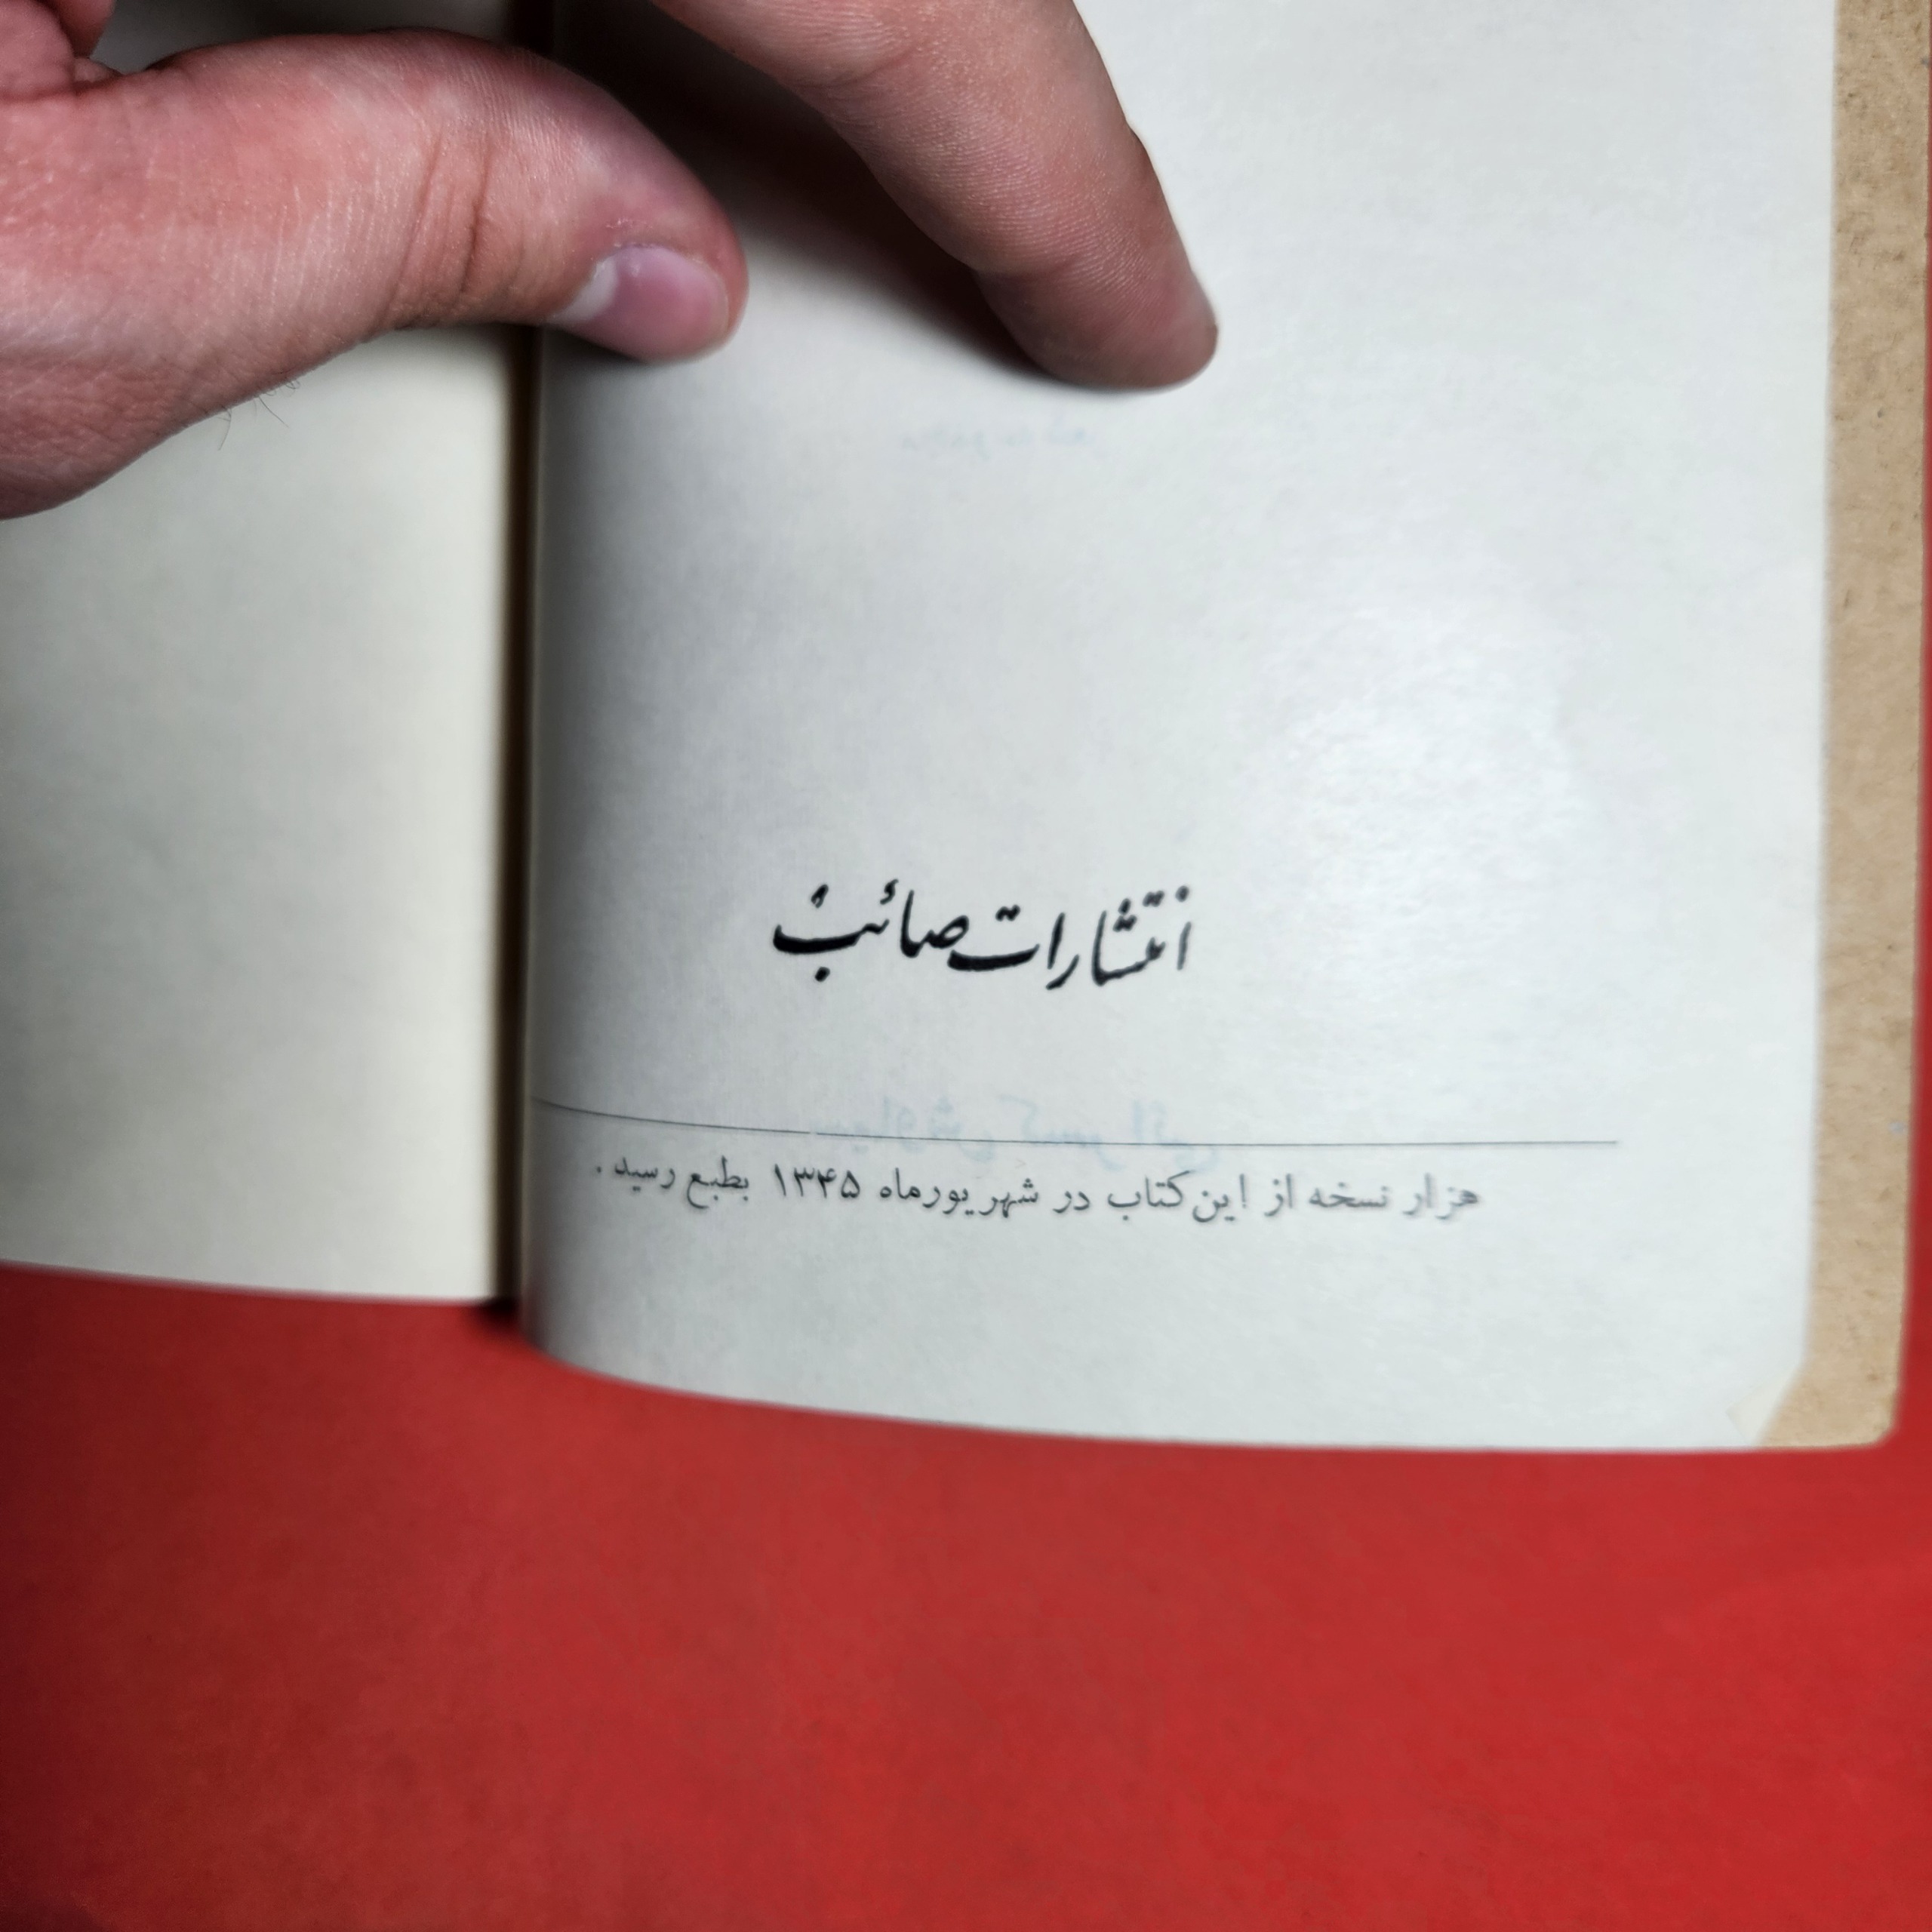 انتشارات صائب
هزار نسخه از این کتاب در شهریورماه ۱۳۴۵ بطبع رسید .